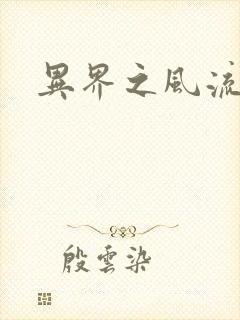 異界之風流
殷雲染